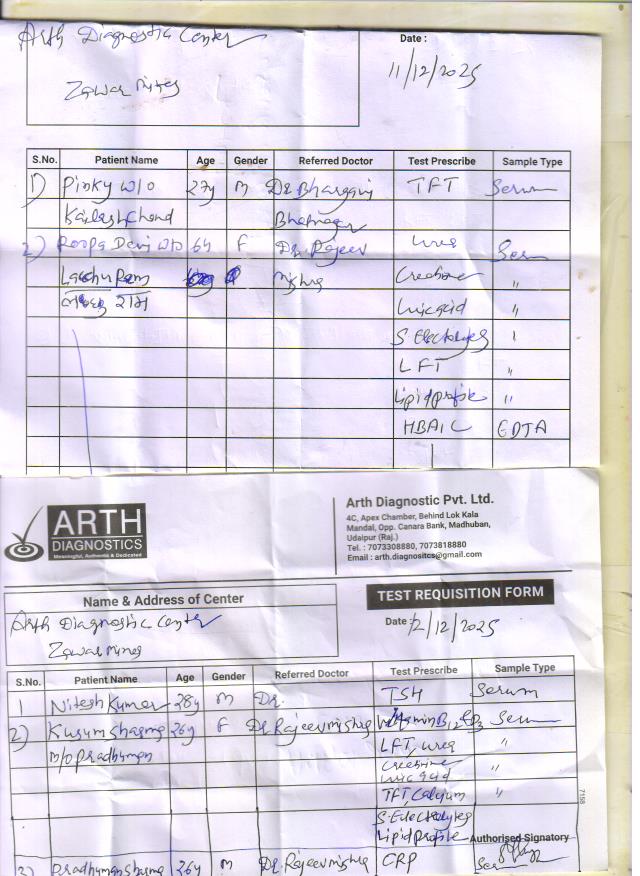 Arth Diagnostic Center
Zawar Mines
Date :
11/12/2025
S.No. Patient Name Age Gender Referred Doctor Test Prescribe Sample Type
1) Pinky W/O 27y M Dr. Bhargavi TFT Serum
Kailash Chand Bhatnagar
2) Roopa Devi W/O 64 F Dr. Rajeev Urea Ser
Lakshu Ram Mishra Creatinine "
राम Uric acid "
S. Electrolytes "
LFT "
Lipid profile "
HBA1C EDTA
ARTH
DIAGNOSTICS
Meaningful, Authentic & Dedicated
Arth Diagnostic Pvt. Ltd.
4C, Apex Chamber, Behind Lok Kala
Mandal, Opp. Canara Bank, Madhuban,
Udaipur (Raj.)
Tel. : 7073308880, 7073818880
Email : arth.diagnositcs@gmail.com
Name & Address of Center
TEST REQUISITION FORM
Arth Diagnostic Center
Zawar Mines
Date : 12/12/2025
S.No. Patient Name Age Gender Referred Doctor Test Prescribe Sample Type
1 Nitesh Kumar 28y M Dr. TSH Serum
2) Kusum Sharma 26y F Dr. Rajeev Mishra Vitamin B12, D3 Serum
M/O Pradhuman LFT, Urea "
Creatinine
Uric acid "
TFT, Calcium "
S. Electrolytes
Lipid profile
7158
Authorised Signatory
3) Pradhuman Sharma 26y M Dr. Rajeev Mishra CRP Ser